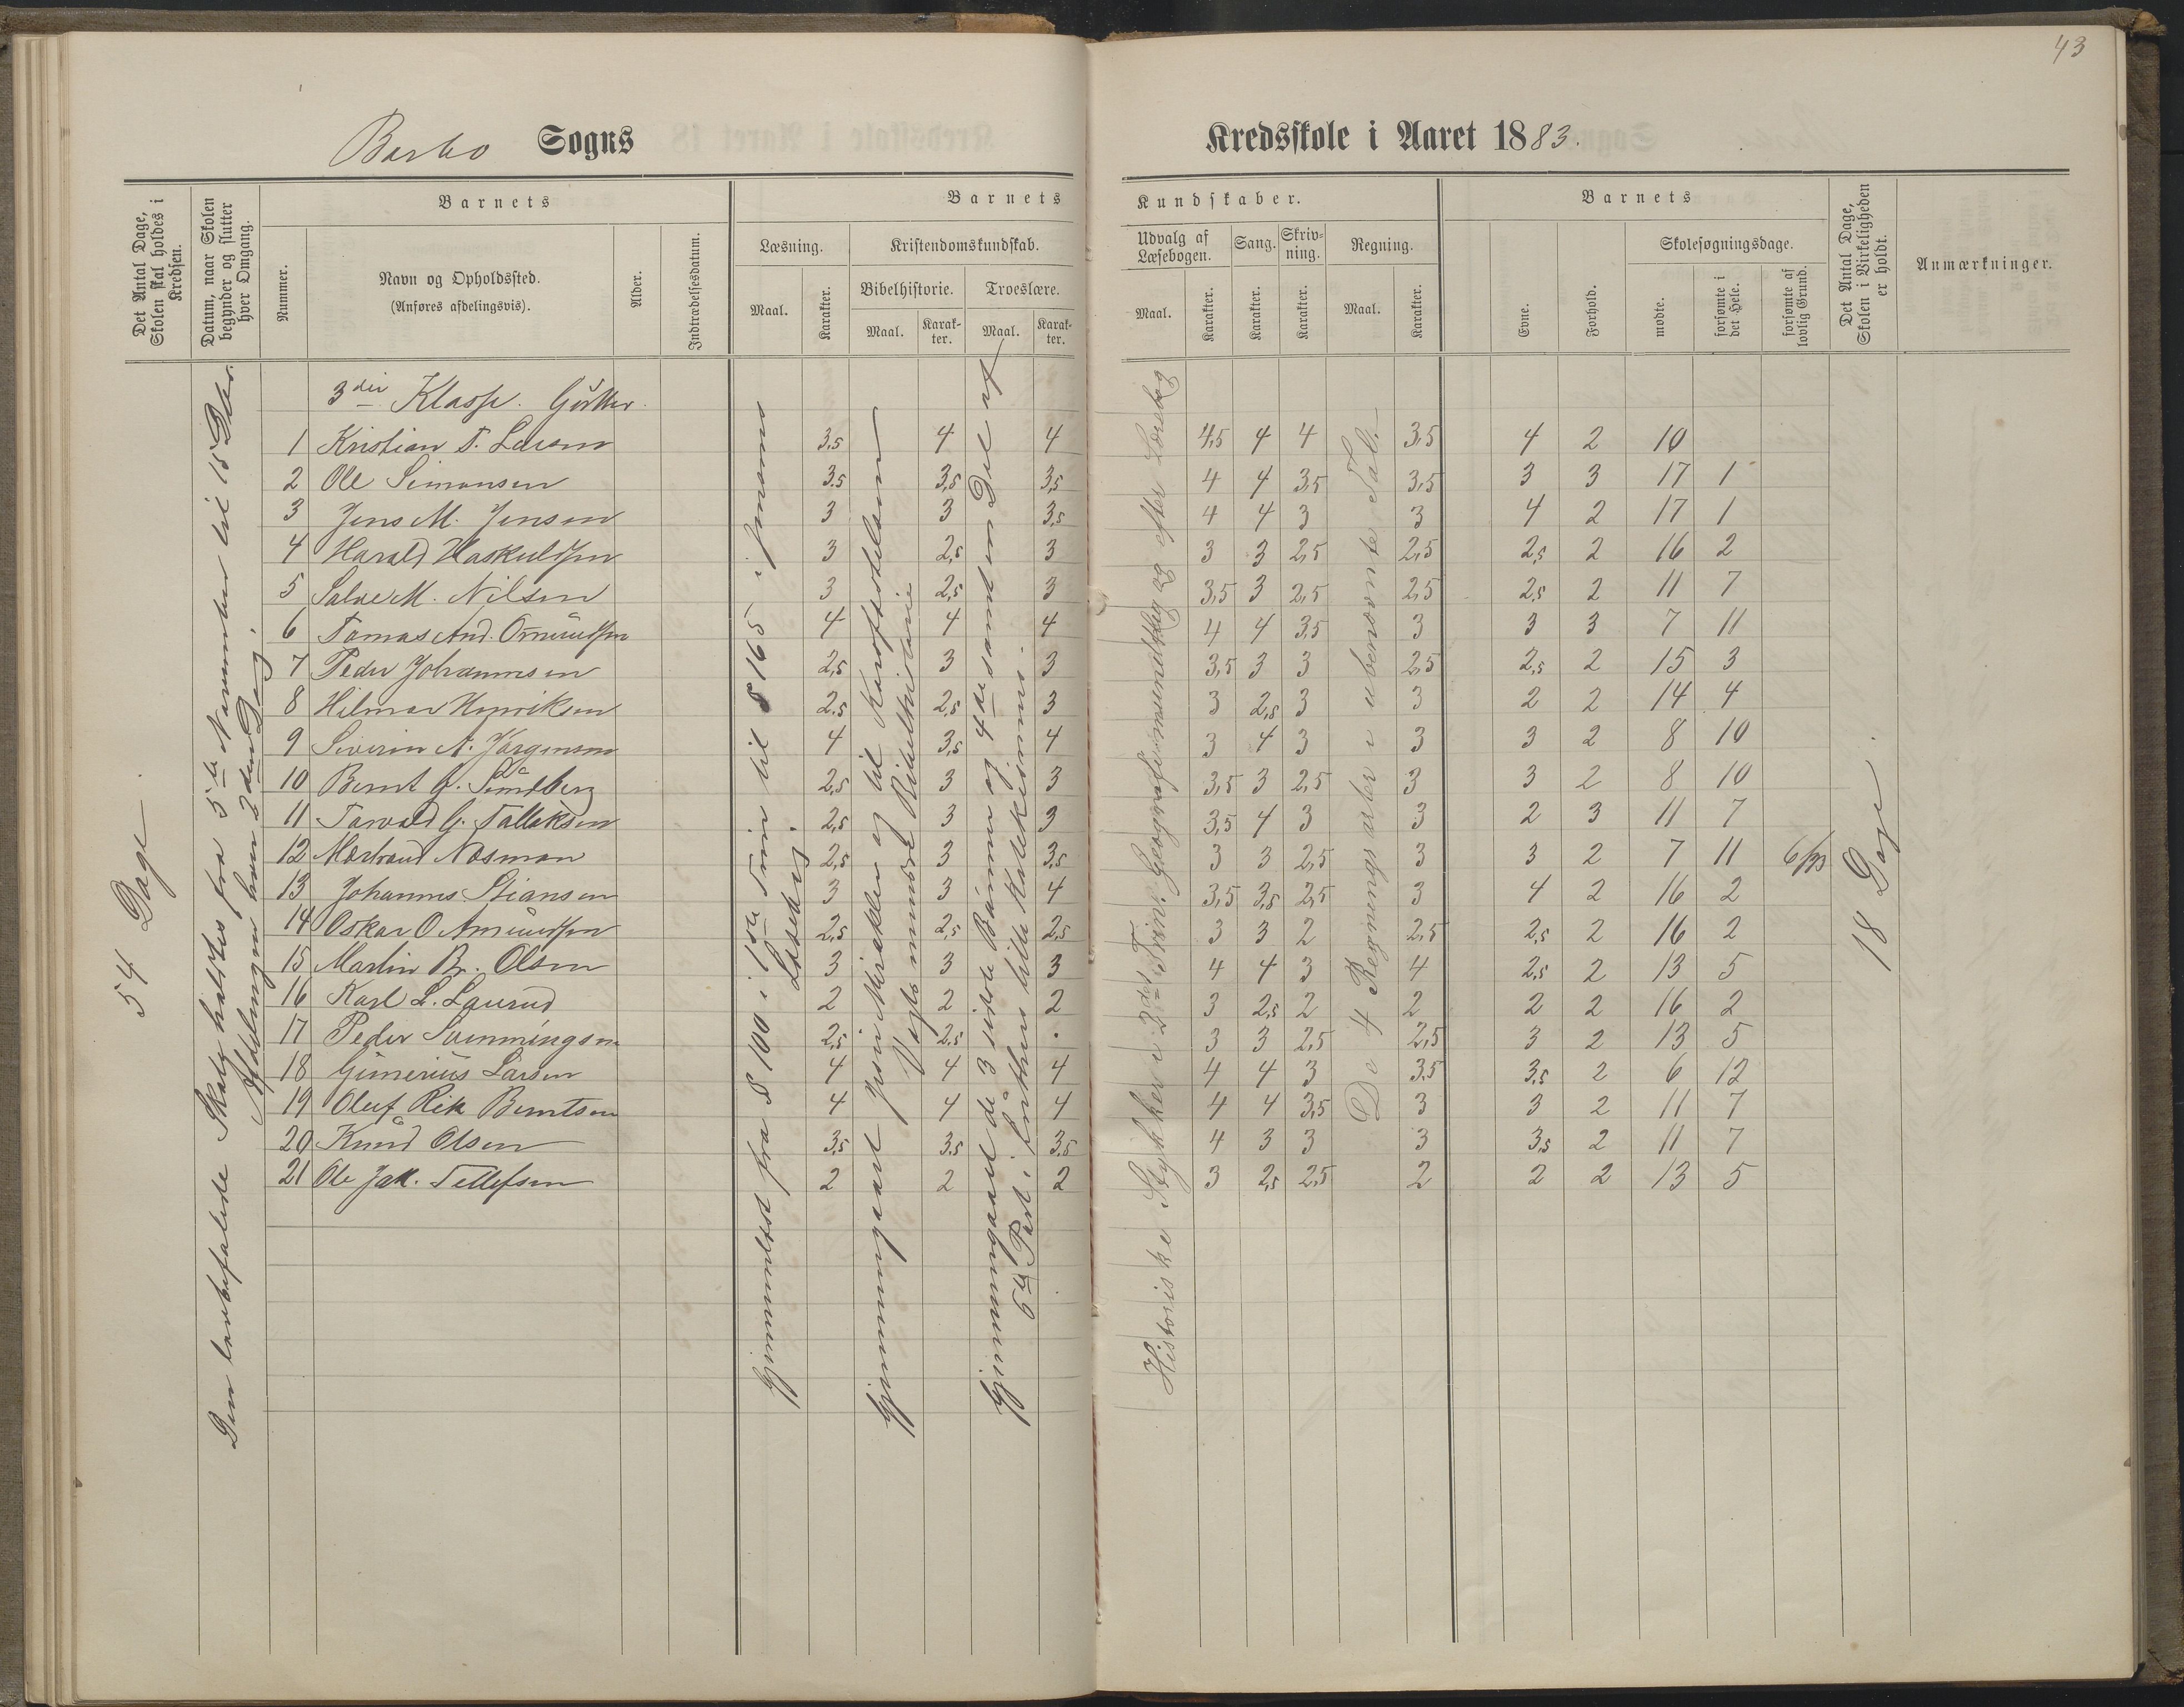 43
Barbo Sogns Kredsskole i Aaret 1883.
Det Antal Dage, Skolen skal holdes i Kredsen.
Datum, naar Skolen begynder og slutter hver Omgang.
Barnets
Nummer.
Navn og Opholdssted.
(Anføres afdelingsvis).
Alder.
Indtrædelsesdatum.
Barnets Kundskaber.
Læsning.
Maal.
Karakter.
Kristendomskundskab.
Bibelhistorie.
Maal.
Karakter.
Troeslære.
Maal.
Karakter.
Udvalg af Læsebogen.
Maal.
Karakter.
Sang.
Karakter.
Skrivning.
Karakter.
Regning.
Maal.
Karakter.
Barnets
Evne.
Forhold.
Skolesøgningsdage.
mødte.
forsømte i det Hele.
forsømte af lovlig Grund.
Det Antal Dage, Skolen i Virkeligheden er holdt.
Anmærkninger.
54 Dage
Den lovbefalede Skole holdtes fra 5te November til 15 Dbr.
Afdelingen hver 2den Dag.
Gjennemlæst fra § 100 i 1ste Trin til § 165 i
Læsebog.
Gjennemgaaet Jesu Mirakler og til Korsfæstelsen
Vogts mindre Bibelhistorie
Gjennemgaaet de 3 sidste Bønner og 4de samt en Del af
5te Part i Luthers lille Katekismus.
Historiske Stykker i 2det Trin. Geografi efter Læsebog
De 4 Regningsarter i ubenævnte Tal.
18 Dage
3die Klasse. Gutter.
1 Kristian T. Larsen 3,5 4 4 4,5 4 4 3,5 4 2 10
2 Ole Simonsen 3,5 3,5 3,5 4 4 3,5 3,5 3 3 17 1
3 Jens M. Jensen 3 3 3,5 4 4 3 3 4 2 17 1
4 Harald Haskuldsen 3 2,5 3 3 3 2,5 2,5 2,5 2 16 2
5 Salve M. Nilsen 3 2,5 3 3,5 3 2,5 2,5 2,5 2 11 7
6 Tomas And. Omundsen 4 4 4 4 4 3,5 3 3 3 7 11
7 Peder Johannesen 2,5 3 3 3,5 3 3 2,5 2,5 2 15 3
8 Hilmar Henriksen 2,5 2,5 3 3 2,5 3 3 2 2 14 4
9 Siverin A. Jørgensen 4 3,5 4 3 4 3 3 3 2 8 10
10 Bernt G. Sundberg 2,5 3 3 3,5 3 2,5 3 3 2 8 10
11 Tarvald G. Tallaksen 2,5 3 3 3,5 4 3 3 2 3 11 7
12 Mortraud Næsman 2,5 3 3,5 3 3 2,5 3 3 2 7 11
13 Johannes Stiansen 3 3 4 3,5 3,5 2,5 3 4 2 16 2
14 Oskar O. Amundsen 2,5 2,5 2,5 3 3 2 2,5 2,5 2 16 2
15 Martin Br. Olsen 3 3 3 4 4 3 4 2,5 2 13 5
16 Karl L. Laurud 2 2 2 3 2,5 2 2 2 2 16 2
17 Peder Svenningsen 2,5 2,5 . 3 3 2,5 2,5 3 2 13 5
18 Gunerius Larsen 4 4 4 4 4 3 3,5 3,5 2 6 12
19 Oluf Rik Berntsen 4 4 4 4 4 3,5 3 3 2 11 7
20 Knud Olsen 3,5 3,5 3,5 4 3 3 3 3,5 2 11 7
21 Ole Jak. Tellefsen 2 2 2 3 2,5 2,5 2 2 2 13 5